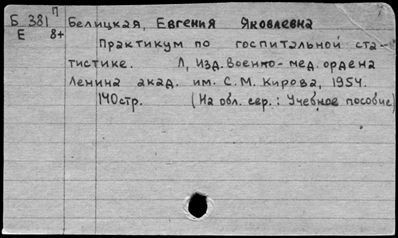 Б 381 П Белицкая, Евгения Яковлевна
Е 8+
Практикум по госпитальной ста-
тистике. Л, Изд. Военно-мед. ордена
Ленина акад. им. С.М. Кирова, 1954.
140стр. (На обл. авт.: Учебное пособие)